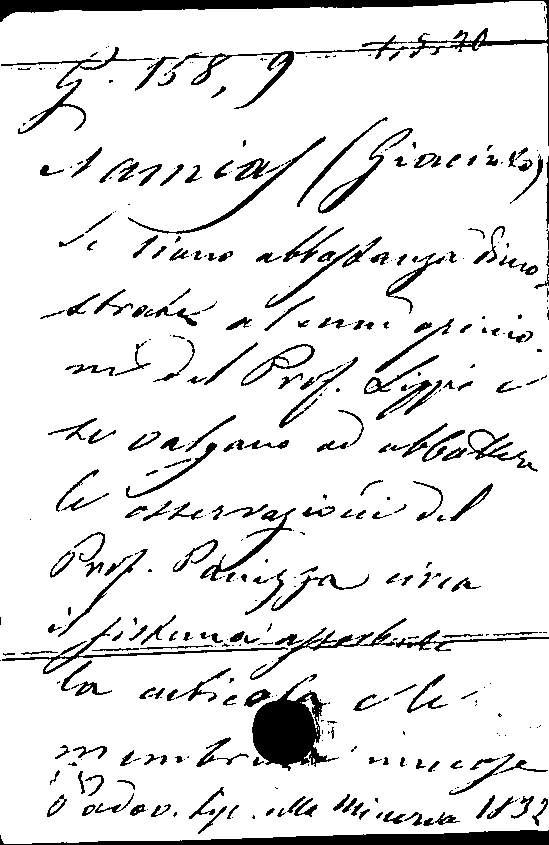 G. 158, 9
Namias (Giacinto)
Se siano abbastanza dimo
strate alcune opinio
ni del Prof. Lippi e
se valgano ad abbattere
le osservazioni del
Prof. Panizza circa
il sistema assorbente
la cuticola e le
membrane mucose
Padov. Tip. alla Minerva 1832